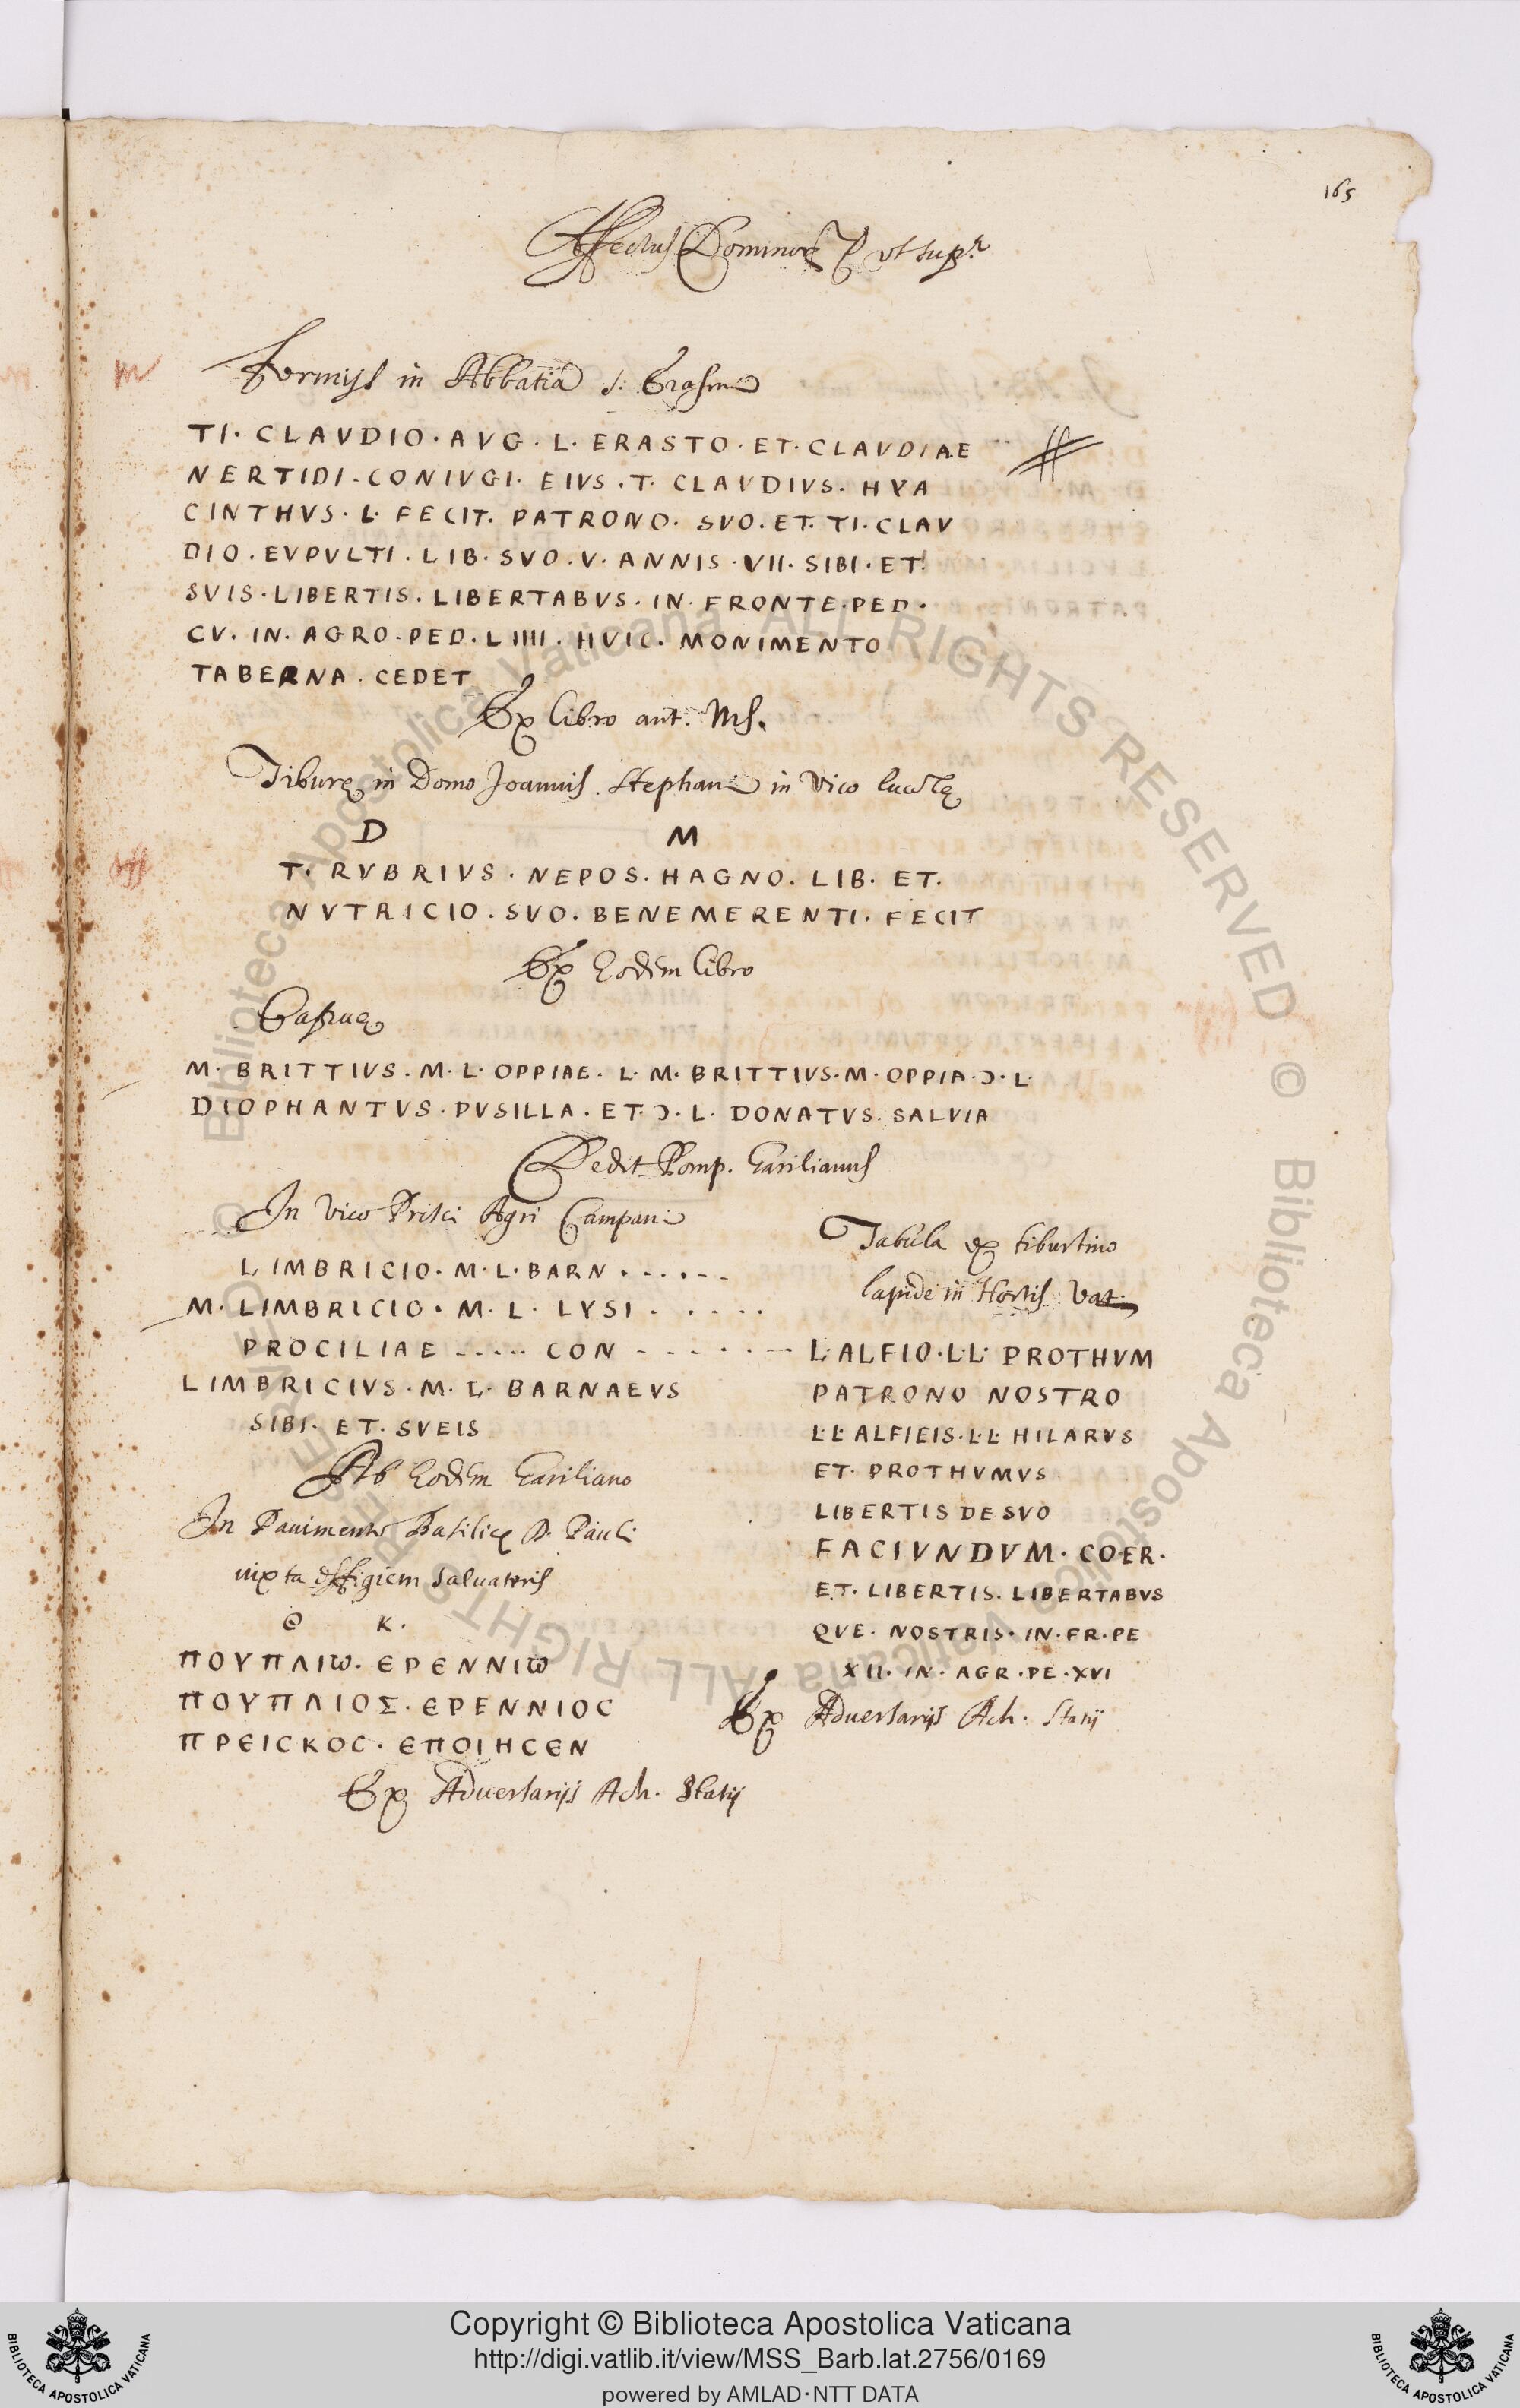 165
Affectus Dominor ut supr
Formijs in Abbatia S. Erasmi
TI · CLAVDIO · AVG · L · ERASTO · ET · CLAVDIAE
NERTIDI · CONIVGI · EIVS · T · CLAVDIVS · HYA
CINTHVS · L · FECIT · PATRONO · SVO · ET · TI · CLAV
DIO · EVPVLTI · LIB · SVO · V · ANNIS · VII · SIBI · ET ·
SVIS · LIBERTIS · LIBERTABVS · IN · FRONTE · PED ·
CV · IN · AGRO · PED · LIIII · HVIC · MONIMENTO
TABERNA · CEDET
Ex libro ant. Ms.
Tibure in Domo Joannis Stephani in Vico
D M
T · RVBRIVS · NEPOS · HAGNO · LIB · ET ·
NVTRICIO · SVO · BENEMERENTI · FECIT
Ex Eodem libro
Capuae
M · BRITTIVS · M · L · OPPIAE · L · M · BRITTIVS · M · OPPIA · Ɔ · L ·
DIOPHANTVS · PVSILLA · ET · Ɔ · L · DONATVS · SALVIA
Dedit Pomp. Garilianus
In Vico Prisci Agri Campani
L IMBRICIO · M · L · BARN · - · · - -
M · LIMBRICIO · M · L · LYSI · · · · ·
PROCILIAE - - - - - CON - - - · · - -
LIMBRICIVS · M · L · BARNAEVS
SIBI · ET · SVEIS
Ab Eodem Gariliano
In Pauimento Basilicę D. Pauli
iuxta effigiem Saluatoris
Θ K ·
ΠΟΥΠΛΙω · ЄΡЄΝΝΙω
ΠΟΥΠΛΙΟΣ · ЄΡЄΝΝΙΟC
ΠΡЄΙCΚΟC · ЄΠΟΙΗCЄΝ
Ex Aduersarijs Ach. Statij
Tabula ex tiburtino
lapide in Hortis Vat.
L · ALFIO · L · L · PROTHVM
PATRONO NOSTRO
L · L · ALFIEIS · L · L · HILARVS
ET · PROTHVMVS
LIBERTIS DE SVO
FACIVNDVM · COER ·
ET · LIBERTIS · LIBERTABVS
QVE · NOSTRIS · IN · FR · PE
XII · IN · AGR · PE · XVI
Ex Aduersarijs Ach. Statij
© Biblioteca Apostolica Vaticana ALL RIGHTS RESERVED © Biblioteca Apostolica Vaticana ALL RIGHTS RESERVED
BIBLIOTECA APOSTOLICA VATICANA
Copyright © Biblioteca Apostolica Vaticana
http://digi.vatlib.it/view/MSS_Barb.lat.2756/0169
powered by AMLAD·NTT DATA
BIBLIOTECA APOSTOLICA VATICANA